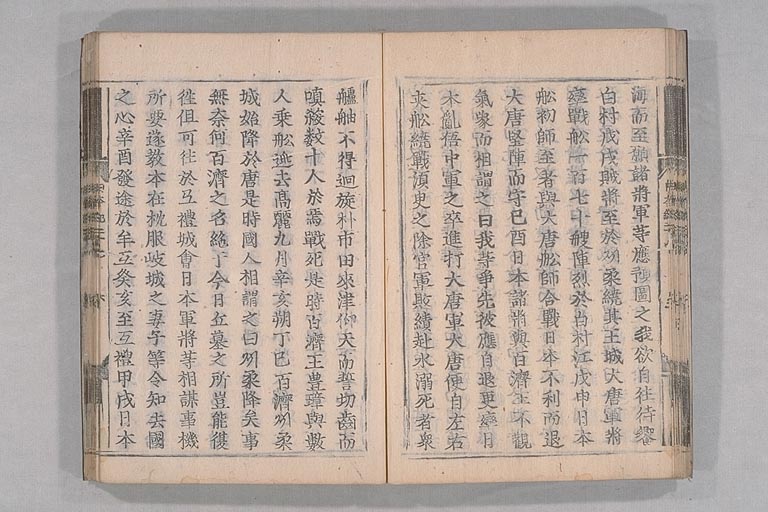 海而至願諸將軍等應預圖之我欲自往待饗
白村戊戌賊將至於州柔繞其王城大唐軍將
率戰船一百七十艘陣烈於白村江戊申日本
船初師至者與大唐船師合戰日本不利而退
大唐堅陣而守己酉日本諸將與百濟王不觀
氣象而相謂之曰我等爭先彼應自退更率日
本亂伍中軍之卒進打大唐軍大唐便自左右
夾船繞戰須臾之際官軍敗績赴水溺死者衆
艫舳不得𢌞旋朴市田來津仰天而誓切齒而
嗔殺數十人於焉戰死是時百濟王豊璋與數
人乗船逃去高麗九月辛亥朔丁巳百濟州柔
城始降於唐是時國人相謂之曰州柔降矣事
無奈何百濟之名絶于今日丘墓之所豈能復
往但可往於弖禮城會日本軍將等相謀事機
所要遂教本在枕服岐城之妻子等令知去國
之心辛酉發途於牟弖癸亥至弖禮甲戌日本